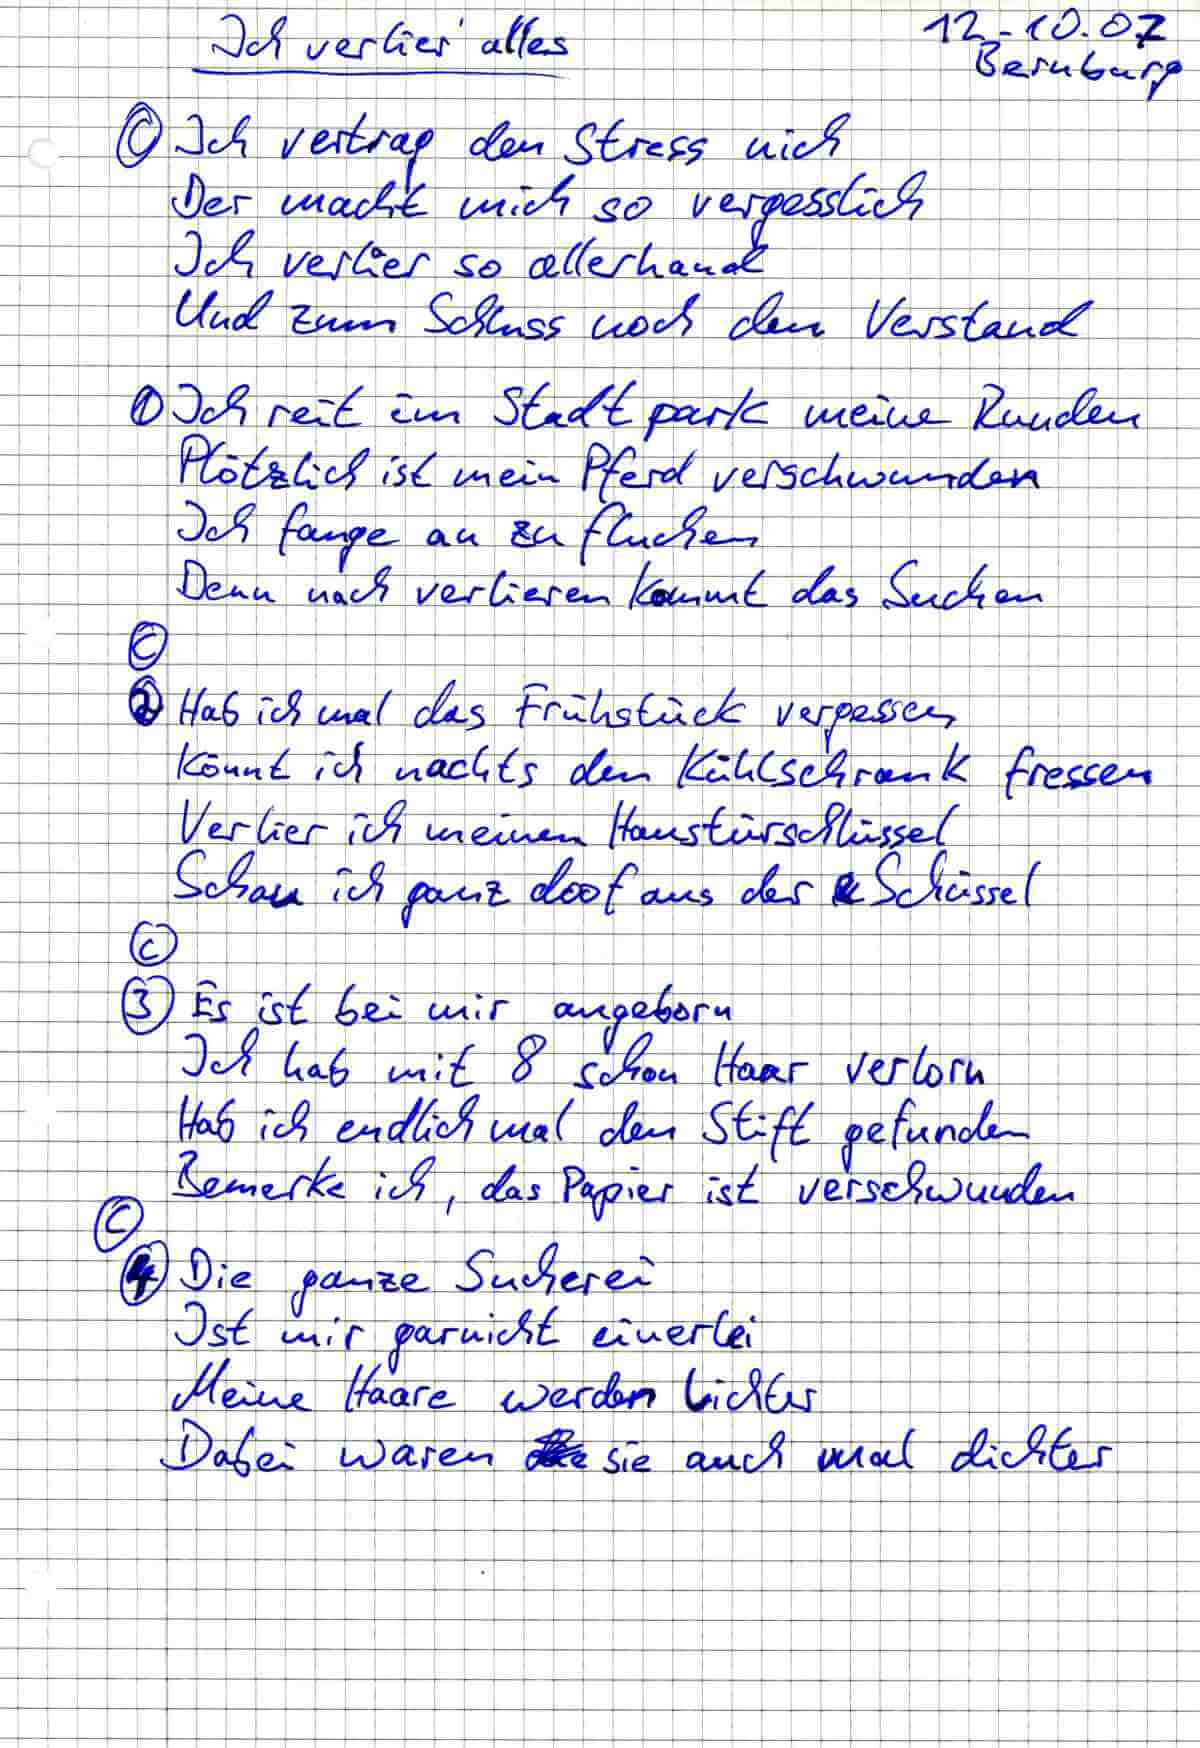 Ich verlier' alles
12.10.07
Bernburg
Ⓒ Ich vertrag den Stress nich
Der macht mich so vergesslich
Ich verlier so allerhand
Und zum Schluss noch den Verstand
① Ich reit im Stadtpark meine Runden
Plötzlich ist mein Pferd verschwunden
Ich fange an zu fluchen
Denn nach verlieren kommt das Suchen
Ⓒ
② Hab ich mal das Frühstück vergessen
Könnt ich nachts den Kühlschrank fressen
Verlier ich meinen Haustürschlüssel
Schau ich ganz doof aus der Schüssel
Ⓒ
③ Es ist bei mir angeborn
Ich hab mit 8 schon Haar verlorn
Hab ich endlich mal den Stift gefunden
Bemerke ich, das Papier ist verschwunden
Ⓒ
④ Die ganze Sucherei
Ist mir garnicht einerlei
Meine Haare werden lichter
Dabei waren sie auch mal dichter